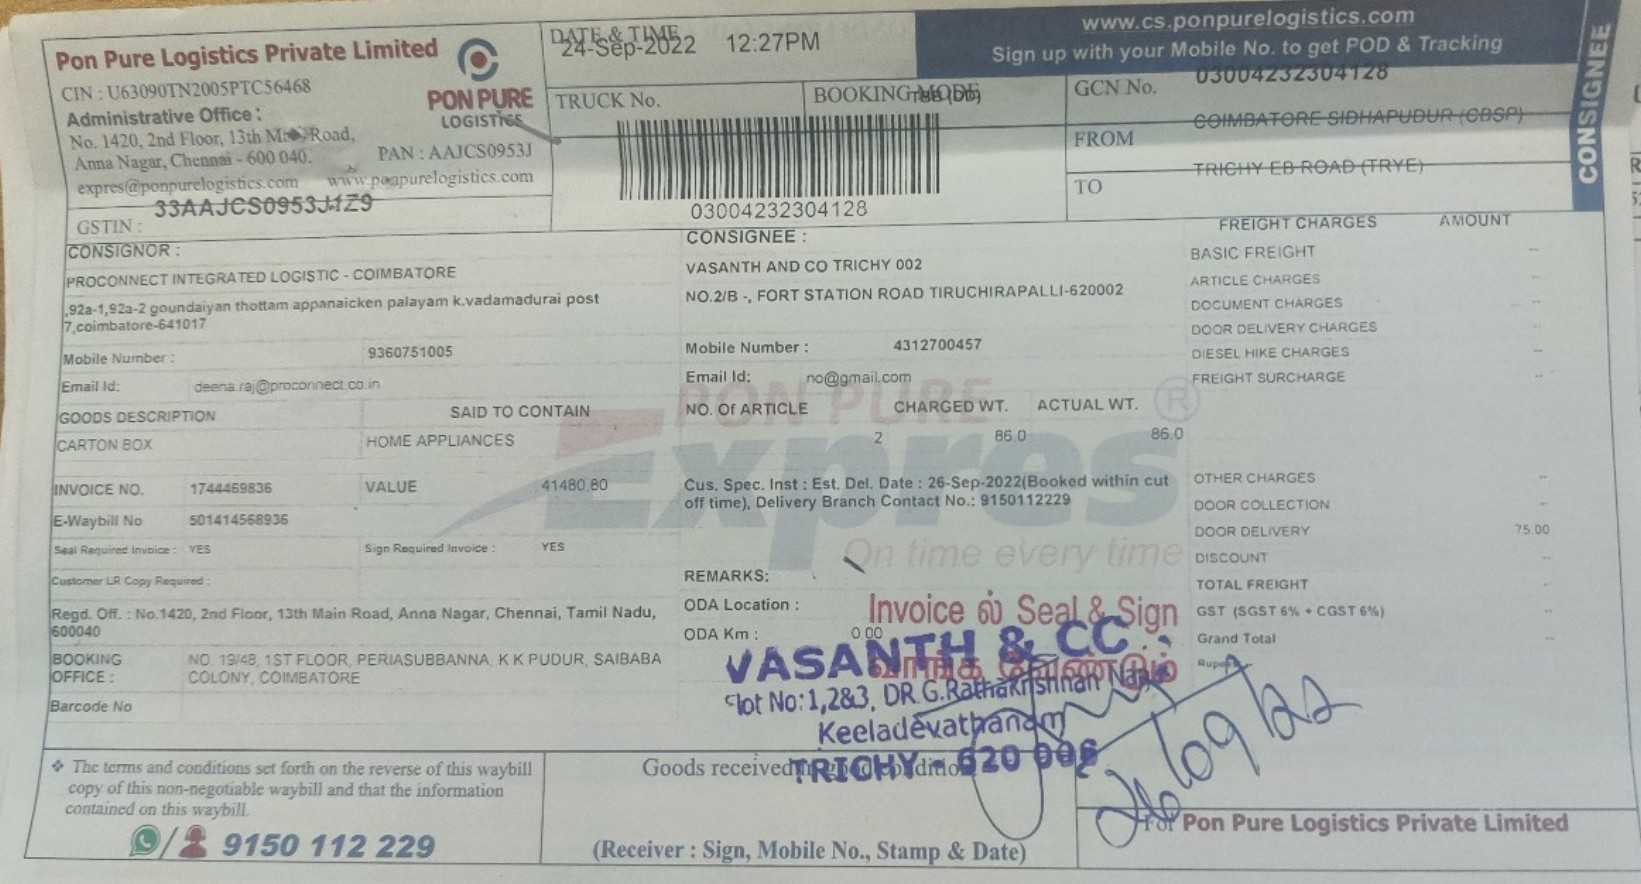 Pon Pure Logistics Private Limited
CIN : U63090TN2005PTC56468
Administrative Office :
No. 1420, 2nd Floor, 13th Main Road,
Anna Nagar, Chennai - 600 040.
PAN : AAJCS0953J
expres@ponpurelogistics.com www.ponpurelogistics.com
GSTIN : 33AAJCS0953J1Z9
PON PURE
LOGISTICS
DATE & TIME
24-Sep-2022 12:27PM
TRUCK No.
BOOKING MODE
03004232304128
www.cs.ponpurelogistics.com
Sign up with your Mobile No. to get POD & Tracking
GCN No. 03004232304128
FROM COIMBATORE SIDHAPUDUR (CBSP)
TO TRICHY EB ROAD (TRYE)
CONSIGNEE
CONSIGNOR :
PROCONNECT INTEGRATED LOGISTIC - COIMBATORE
,92a-1,92a-2 goundaiyan thottam appanaicken palayam k.vadamadurai post
7,coimbatore-641017
Mobile Number : 9360751005
Email Id: deena.raj@proconnect.co.in
CONSIGNEE :
VASANTH AND CO TRICHY 002
NO.2/B -, FORT STATION ROAD TIRUCHIRAPALLI-620002
Mobile Number : 4312700457
Email Id: no@gmail.com
GOODS DESCRIPTION SAID TO CONTAIN NO. Of ARTICLE CHARGED WT. ACTUAL WT.
CARTON BOX HOME APPLIANCES 2 86.0 86.0
INVOICE NO. 1744469836 VALUE 41480.80
E-Waybill No 501414568936
Seal Required Invoice : YES Sign Required Invoice : YES
Customer LR Copy Required :
Regd. Off. : No.1420, 2nd Floor, 13th Main Road, Anna Nagar, Chennai, Tamil Nadu,
600040
BOOKING OFFICE : NO. 19/48, 1ST FLOOR, PERIASUBBANNA, K K PUDUR, SAIBABA
COLONY, COIMBATORE
Barcode No
Cus. Spec. Inst : Est. Del. Date : 26-Sep-2022(Booked within cut
off time), Delivery Branch Contact No.: 9150112229
PON PURE
Expres
On time every time
REMARKS:
ODA Location :
ODA Km : 0.00
Invoice ல் Seal & Sign
வாங்க வேண்டும்
VASANTH & CO
Slot No:1,2&3, DR.G.Rathakrishnan
Keeladevathanam
TRICHY - 620 006
FREIGHT CHARGES AMOUNT
BASIC FREIGHT --
ARTICLE CHARGES --
DOCUMENT CHARGES --
DOOR DELIVERY CHARGES --
DIESEL HIKE CHARGES --
FREIGHT SURCHARGE --
OTHER CHARGES --
DOOR COLLECTION --
DOOR DELIVERY 75.00
DISCOUNT --
TOTAL FREIGHT --
GST (SGST 6% + CGST 6%) --
Grand Total --
The terms and conditions set forth on the reverse of this waybill
copy of this non-negotiable waybill and that the information
contained on this waybill.
9150 112 229
Goods received in good condition
(Receiver : Sign, Mobile No., Stamp & Date)
For Pon Pure Logistics Private Limited